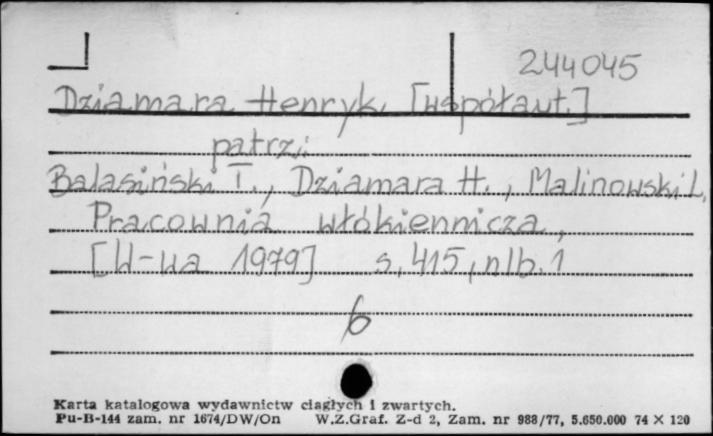 244045
Dziamara Henryk [współaut.]
patrz:
Balasiński T., Dziamara H., Malinowski L,
Pracownia włókiennicza,
[W-wa 1979] s. 415, nlb. 1
b
Karta katalogowa wydawnictw ciągłych i zwartych.
Pu-B-144 zam. nr 1674/DW/On W.Z.Graf. Z-d 2, Zam. nr 988/77, 5.650.000 74 X 120